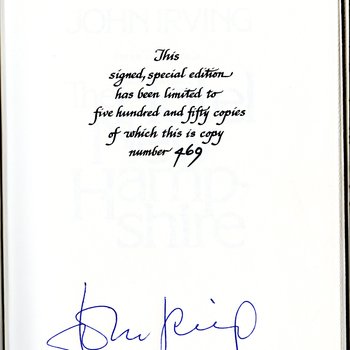 JOHN IRVING
This
signed, special edition
has been limited to
five hundred and fifty copies
of which this is copy
number 469
Hamp-
shire